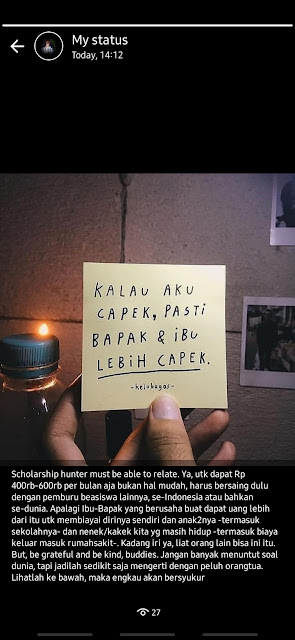 My status
Today, 14:12
KALAU AKU
CAPEK, PASTI
BAPAK & iBU
LEBiH CAPEK.
-heiobagas-
Scholarship hunter must be able to relate. Ya, utk dapat Rp
400rb-600rb per bulan aja bukan hal mudah, harus bersaing dulu
dengan pemburu beasiswa lainnya, se-Indonesia atau bahkan
se-dunia. Apalagi Ibu-Bapak yang berusaha buat dapat uang lebih
dari itu utk membiayai dirinya sendiri dan anak2nya -termasuk
sekolahnya- dan nenek/kakek kita yg masih hidup -termasuk biaya
keluar masuk rumahsakit-. Kadang iri ya, liat orang lain bisa ini itu.
But, be grateful and be kind, buddies. Jangan banyak menuntut soal
dunia, tapi jadilah sedikit saja mengerti dengan peluh orangtua.
Lihatlah ke bawah, maka engkau akan bersyukur
27